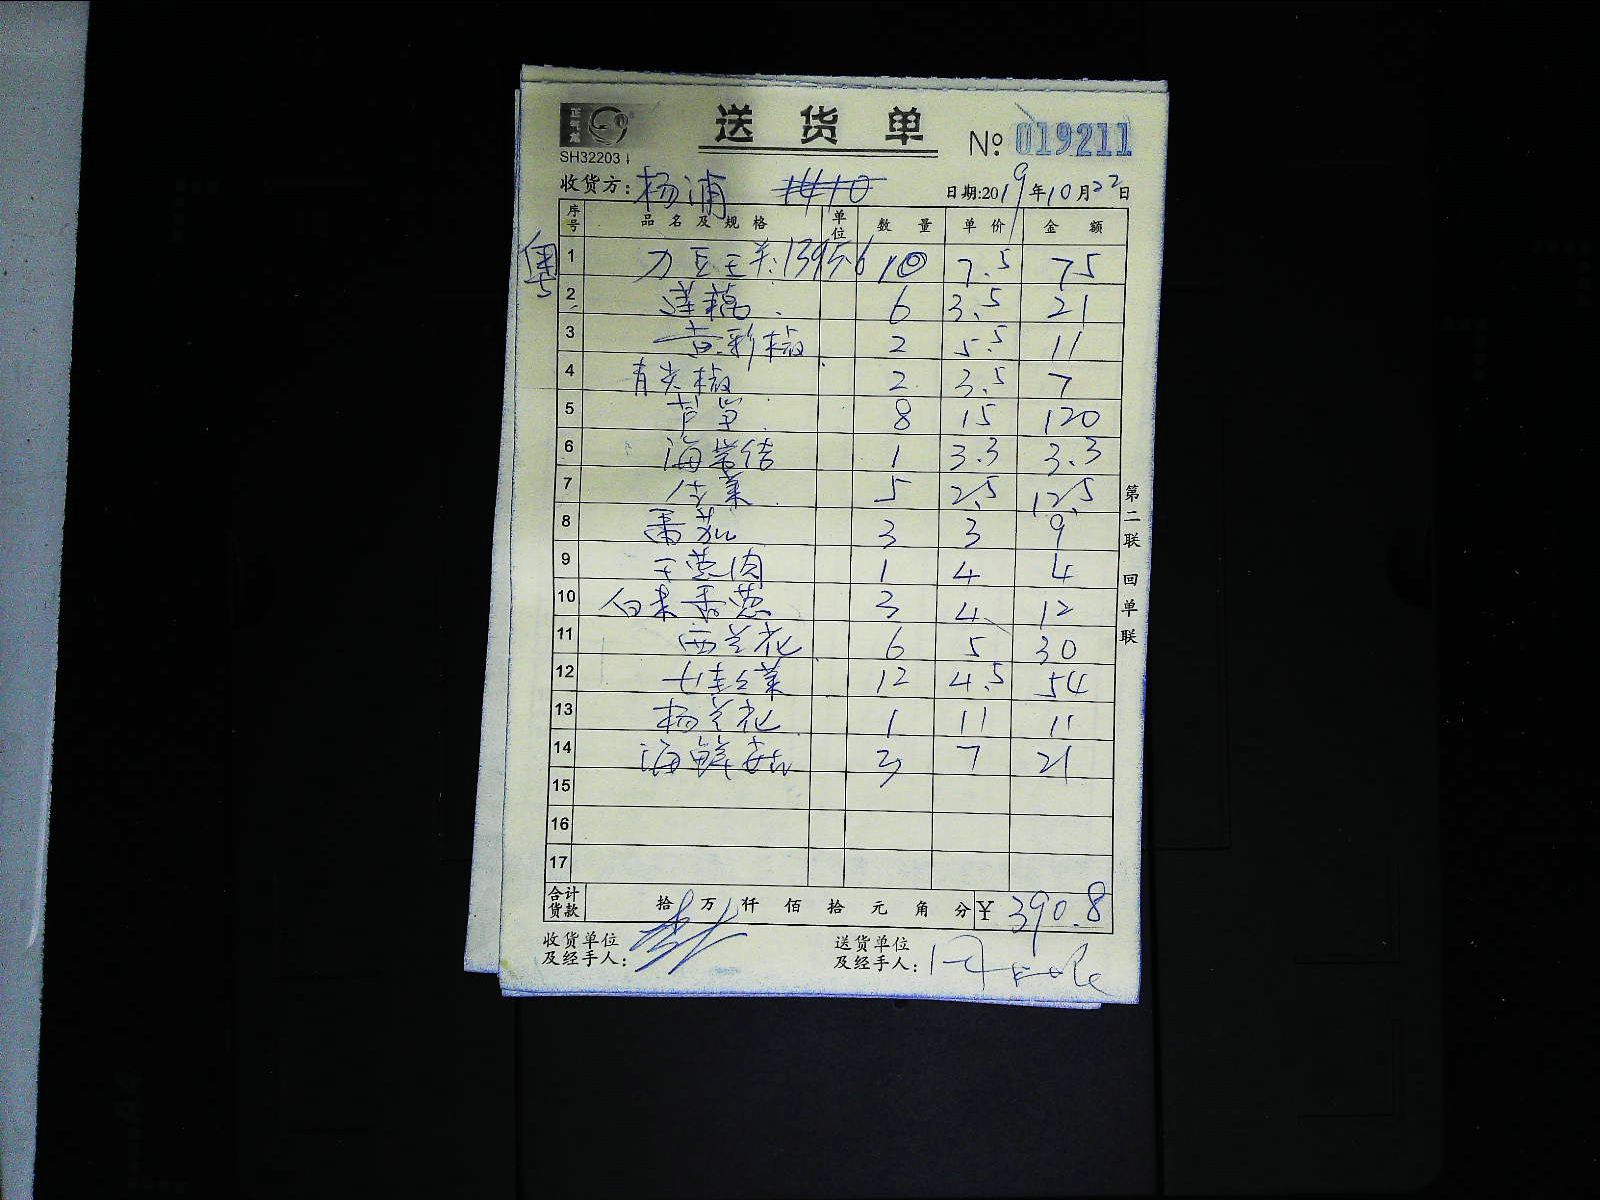 正气龙
送货单 № 019211
SH32203
收货方: 杨浦 日期:2019年10月22日
序号 品名及规格 单位 数量 单价 金额
粤
1 刀豆 10 7.5 75
2 莲藕 6 3.5 21
3 黄彩椒 2 5.5 11
4 青尖椒 2 3.5 7
5 芦笋 8 15 120
6 海带结 1 3.3 3.3
7 生菜 5 2.5 12.5
8 番茄 3 3 9
9 1 4 4
10 3 4 12
11 西兰花 6 5 30
12 12 4.5 54
13 杨兰花 1 11 11
14 海鲜菇 3 7 21
15
16
17
合计货款 拾万仟佰拾元角分 ¥ 390.8
收货单位及经手人:
送货单位及经手人:
第二联 回单联